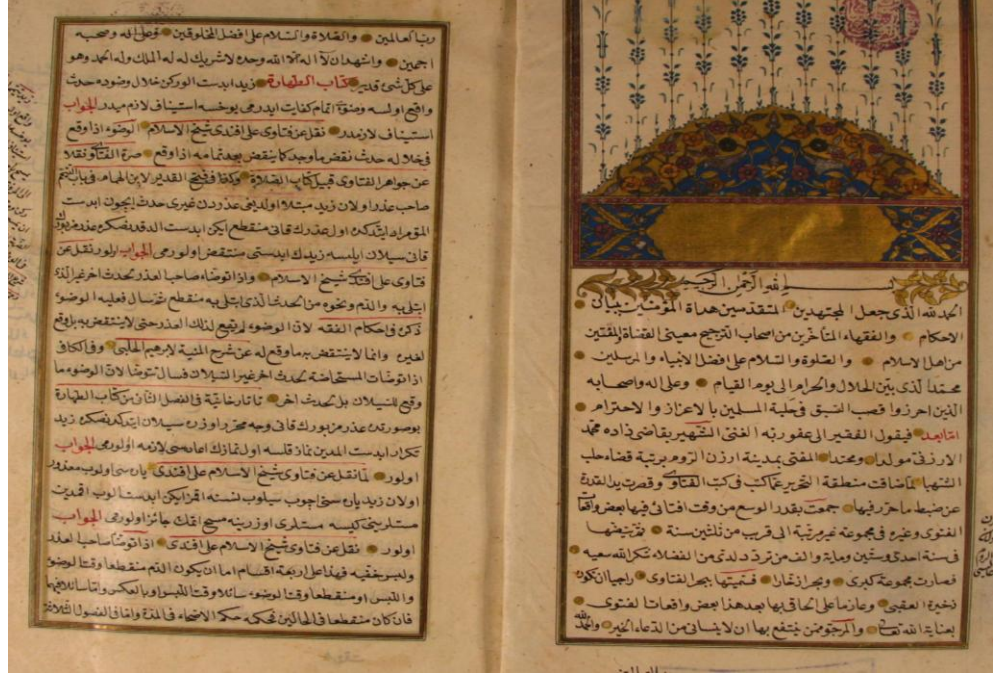 بسم الله الرحمن الرحيم
الحمد لله الذى جعل المجتهدين المتقدمين هداة المؤمنين بمبانى
الاحكام والفقهاء المتأخرين من اصحاب الترجيح معينى لقضاة والمفتين
من اهل الاسلام والصلوة والسلام على افضل الانبياء والمرسلين
محمد الذى بين الحلال والحرام الى يوم القيام وعلى اله واصحابه
الذين احرزوا قصب السبق فى حلبة المسلمين بالاعزاز والاحترام
اما بعد فيقول الفقير الى عفو ربه الغنى الشهير بقاضى زاده محمد
الارزنى مولدا ومحتدا المفتى بمدينة ارزن الروم برتبة قضاء حلب
الشهبا لما ضاقت منطقة التحرير عما كتب فى كتب الفتاوى وقصرت يد القدرة
عن ضبط ما حرر فيها جمعت بقدر الوسع من وقت افتائى فيها بعض واقعات
الفتوى وغيره فى مجموعة غير مرتبة الى قرب من ثلثين سنة ثم بيضتها
فى سنة احدى وستين ومأية والف من تردد لدتى من الفضلاء شكر الله سعيه
فصارت مجموعة كبرى وبحرا زخارا فسميتها ببحر الفتاوى راجيا ان يكون
ذخيرة العقبى وعازما على الحاق بها بعد هذا بعض واقعات الفتوى
بعناية الله تعالى والمرجو ممن ينتفع بها ان لا ينسانى من الدعاء الخير والحمد لله
رب العالمين والصلاة والسلام على افضل المخلوقين وعلى اله وصحبه
اجمعين واشهد ان لا اله الا الله وحده لا شريك له له الملك وله الحمد وهو
على كل شئ قدير كتاب الطهارة زيد ابدست الوركن خلال وضوده حدث
واقع اولسه وضوئى اتمام كفايت ايدرمى يوخسه استيناف لازم ميدر الجواب
استيناف لازمدر نقل عن فتاوى على افندى شيخ الاسلام الوضوء اذا وقع
فى خلاله حدث نقض ما وجد كما ينقض بعد تمامه اذا وقع صرة الفتاوى نقلا
عن جواهر الفتاوى قبيل كتاب الصلاة وكذا فى فتح القدير لابن الهمام فى باب التيمم
صاحب عذر اولان زيد مبتلا اولديغى عذردن غيرى حدث ايچون ابدست
المق مراد ايتدكده اول عذرك قانى منقطع ايكن ابدست الدقدنصكره عذر مزبورك
قانى سيلان ايلمسه زيدك ابدستى منتقض اولورمى الجواب اولور نقل عن
فتاوى على افندى شيخ الاسلام واذا توضاء صاحب العذر لحدث اخر غير الذى
ابتلى به والدم ونحوه من الحدث الذى ابتلى به منقطع ثم سال فعليه الوضوء
ذكره فى احكام الفقه لان الوضوء لم يقع لذلك العذر حتى لا ينتقض به بل وقع
لغيره وانما لا ينتقض به ما وقع له عن شرح المنية لابرهيم الحلبى وفى الكافى
اذا توضأت المستحاضة لحدث اخر غير السيلان فسال تتوضأ لان الوضوء ما
وقع للسيلان بل لحدث اخر تاتارخانية فى الفصل الثانى من كتاب الطهارة
بو صورتده عذر مزبورك قانى وجه محرر اوزره سيلان ايتدكدنصكره زيد
تكرار ابدست المدين نماز قلسه اول نمازك اعاده سى لازمه اولورمى الجواب
اولور نقل عن فتاوى شيخ الاسلام على افندى ياره سى اولوب معذور
اولان زيد ياره سنى اچوب سيلوب نسنه اقمز ايكن ابدست الوب اقمدين
مستلرينى كيسه مستلرى اوزرينه مسح اتمك جائز اولورمى الجواب
اولور نقل عن فتاوى شيخ الاسلام على افندى اذا توضأ صاحب العذر
ولبس خفيه فهذا على اربعة اقسام اما ان يكون الدم منقطعا وقت الوضوء
واللبس او منقطعا وقت الوضوء سائلا وقت اللبس او بالعكس واما سائلا فيهما
فان كان منقطعا فى الحالين فحكمه حكم الاصحاء فى المدة واما فى الفصول الثلاثة